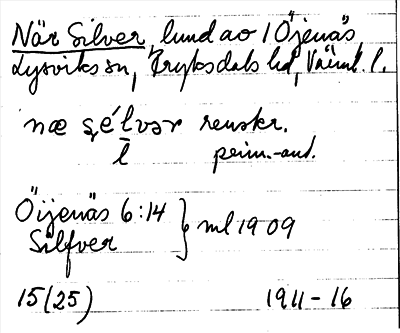 När Silver, lund av 1 Öjenäs
Lysviks sn, Fryksdals hd, Värml. l.
næ sélvər renskr.
l prim.-ant.
Öijenäs 6:14 } ml 1909
Silfver
15(25) 1911-16